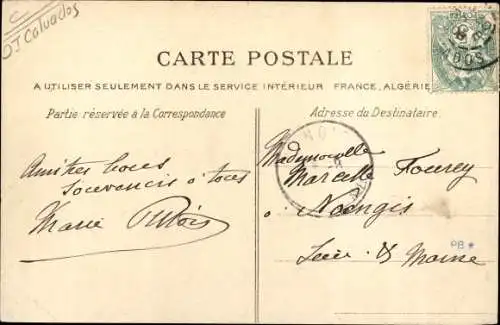 C
DI Calvados
CARTE POSTALE
A UTILISER SEULEMENT DANS LE SERVICE INTÉRIEUR FRANCE, ALGÉRIE
Partie réservée à la Correspondance
Adresse du Destinataire.
Mademoiselle
Marcelle Fourey
à Nangis
Seine & Marne
souvenirs à tous
Marie
PB *